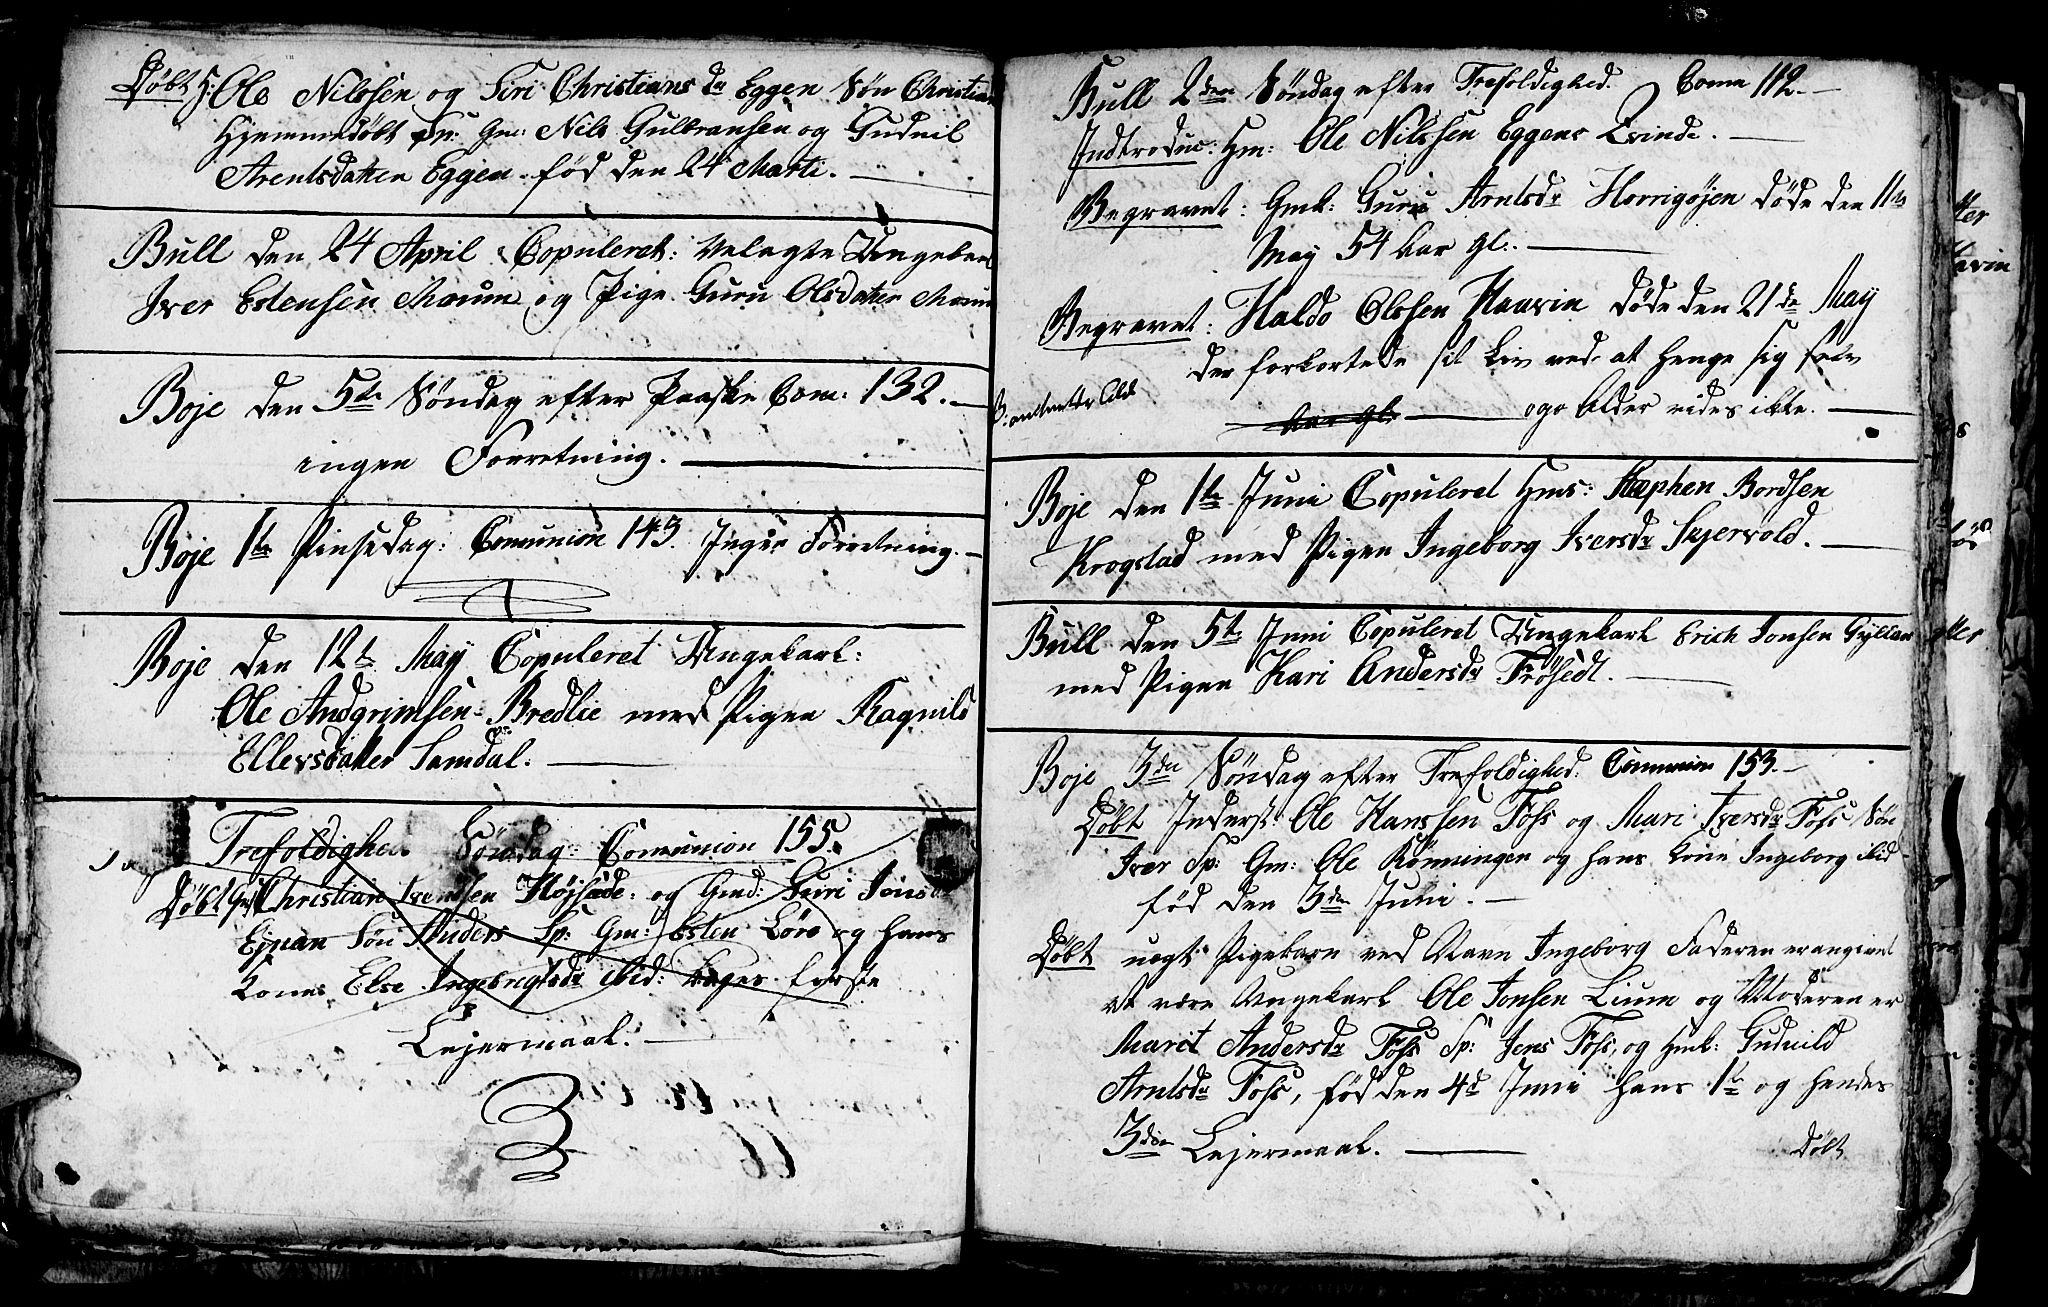 Døbt Ole Nilssen og Siri Christiansdr Eggen Søn Christian
Hjemmedøbt Sp: Gm: Nils Gulbransen og Gudnil
Arentsdatter Eggen. fød den 24 Marti.
Bull den 24 April Copuleret: Velagte Ungekarl
Iver Estensen Moeum og Pige Guru Olsdatter Moeum
Boje den 5te Søndag efter Paaske Com: 132.
ingen Forretning.
Boje 1te Pinsedag: Comunion 143. Ingen Forretning.
Boje den 12t May Copuleret Ungekarl:
Ole Andgrimsen Bredlie med Pigen Ragnild
Ellevsdatter Samdal.
Trefoldighed Søndag: Comunion 155.
Døbt Christian Svendsen Højsæde og Gmd: Guri Jonsdr
Eguan Søn Anders Sp: Gm: Esten Løre og hans
Kone Else Ingebrigtsdr ibid: begges første
Lejermaal.
Bull 2den Søndag efter Trefoldighed. Comn 112.
Indtroduc: Hm: Ole Nilssen Eggens Qvinde.
Begravet: Gmk: Guru Arntsdr Horrigøjen døde den 11te
May 54 Aar gl:
Begravet: Haldo Olssen Haavin døde den 21de May
der forkortede sit Liv ved at henge sig selv
Aar gl. og Alder vides ikke.
Boje den 1te Juni Copuleret Hms: Stephen Bordsen
Krogstad med Pigen Ingeborg Iversdr Skjervold.
Bull den 5te Juni Copuleret Ungekarl Erich Jonsen Gyllan
med Pigen Kari Andersdr Frøsedt.
Boje 3die Søndag efter Trefoldighed. Communion 153.
Døbt Inderst: Ole Hanssen Foss og Mari Iversdr Foss Søn
Iver Sp: Gm: Ole Rønningen og hans Kone Ingeborg ibid
fød den 3die Juni.
Døbt uegt: Pigebarn ved Navn Ingeborg Faderen er angivet
at være Ungekarl Ole Jonsen Lium og Moderen er
Marit Andersdr Foss Sp: Jens Foss, og Hmk: Gudnild
Arntsdr Foss, fød den 4d Juni hans 1te og hendes
3die Lejermaal.
Døbt